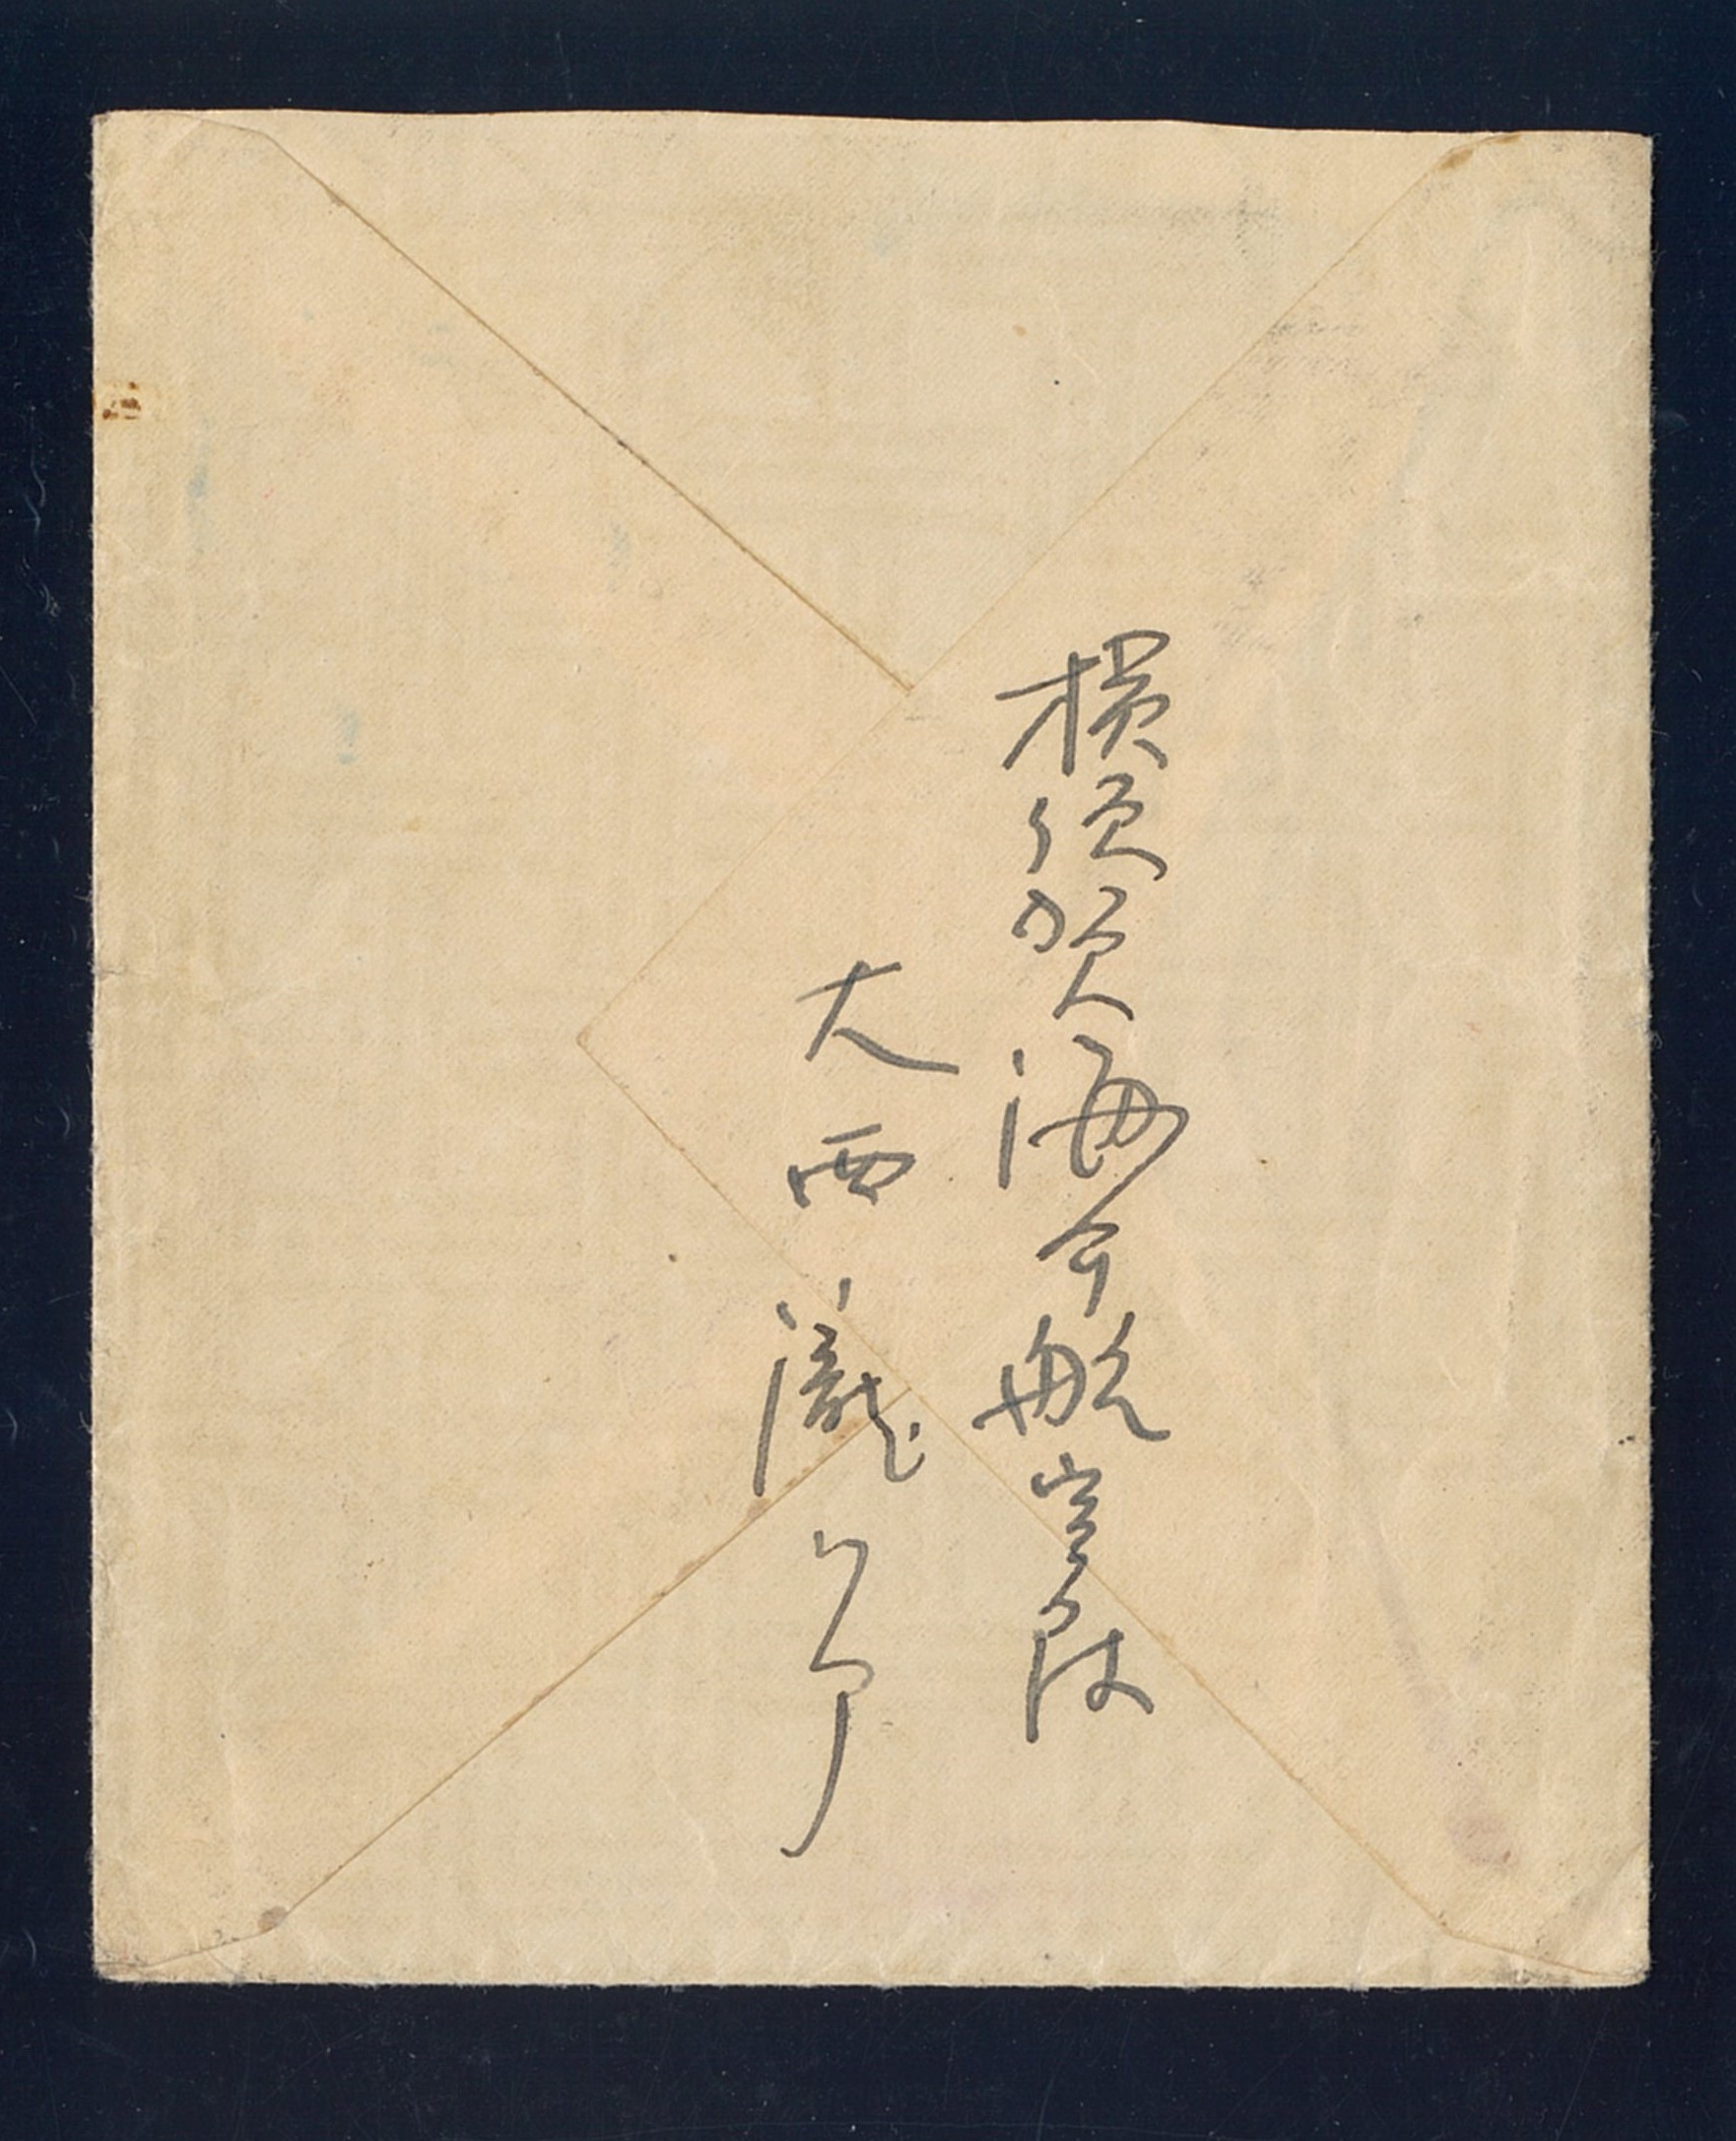 横須賀海軍航空隊
大西瀧治郎